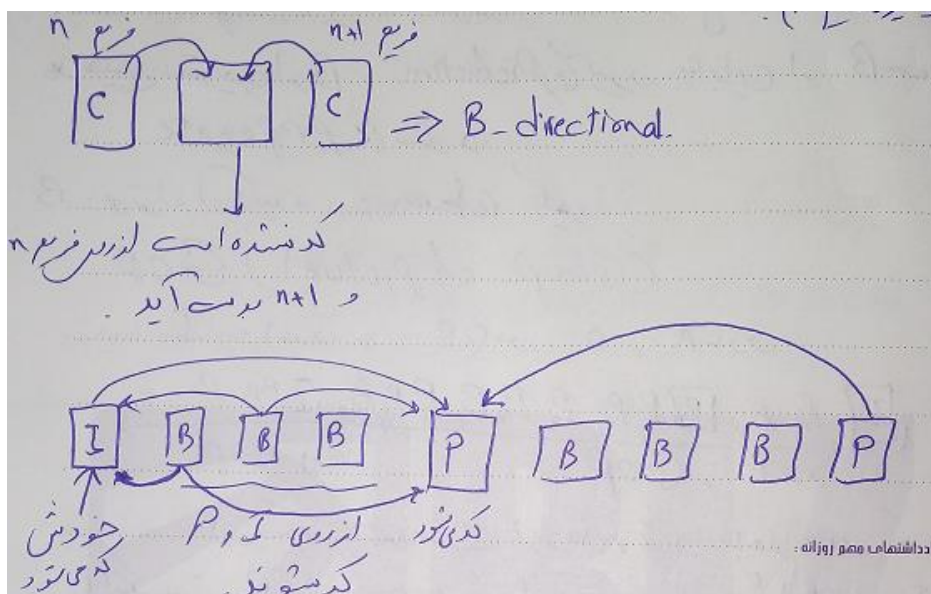 فریم n
فریم n+1
C C ⇒ B-directional.
کد نشده است از روی فریم n
و n+1 بدست آید.
I B B B P B B B P
خودش
کد می شود
از روی I و P
کد میشوند
کد می شود
دداشتهای مهم روزانه :